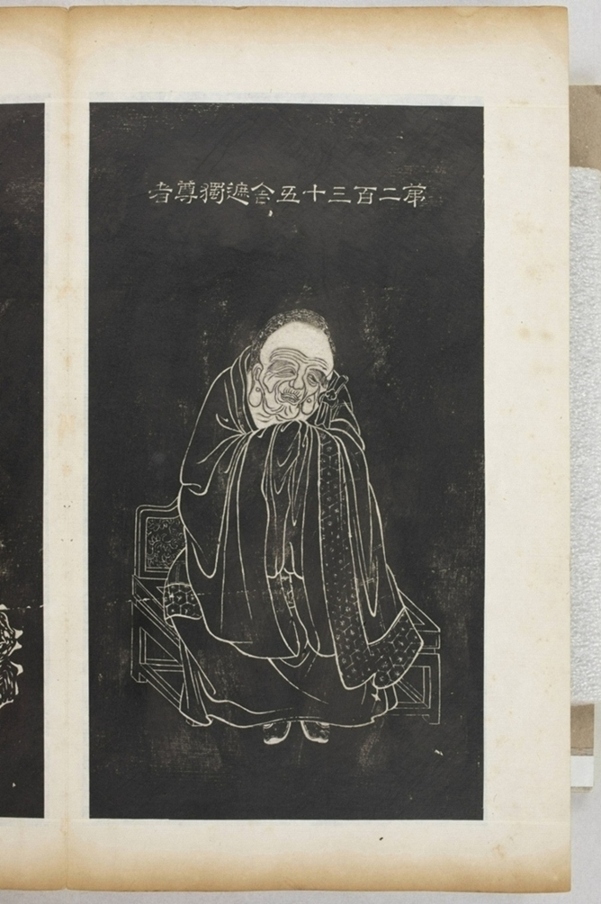 第二百三十五舍遮獨尊者